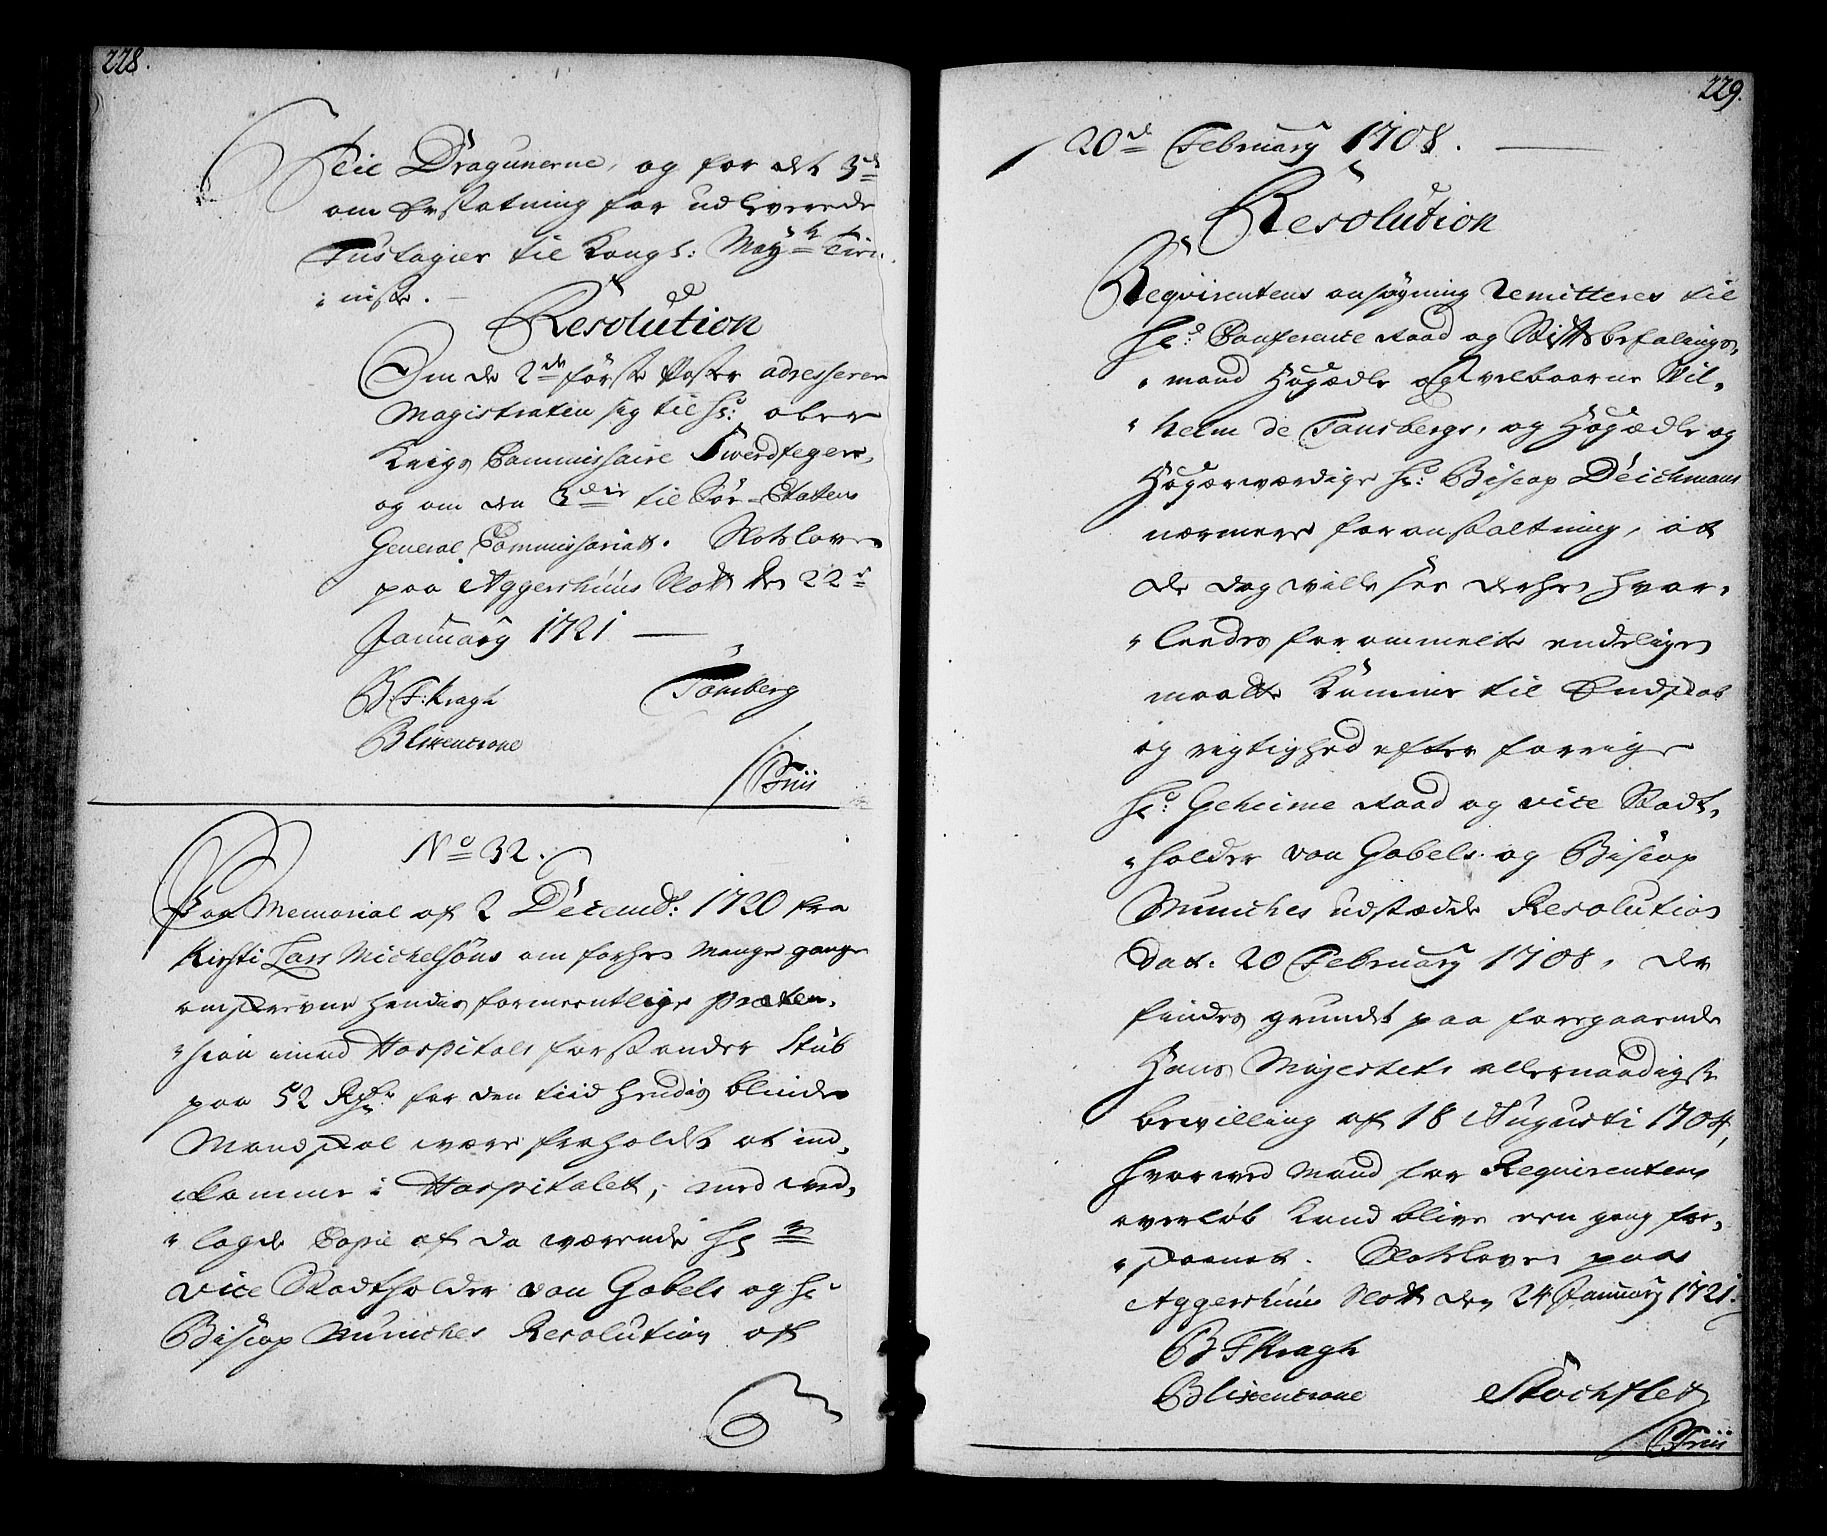 228.
til Dragunerne, og for det 3d
om Erstatning for udleverede
Fustagier til Kongl: May.ts
niste.
Resolution
Om de 2de første Poster adresserer
Magistraten sig til Hr: ober
Krigs Commissaire Swerdfeger,
og om den 3die til Søe-Etatens
General Commissariatt. Slotzloven
paa Aggershuus Slott den 22d
January 1721
B: F: Kragh Tønsberg
Blixencrone
Friis
No 32.
Paa Memorial af 2 Decemb: 1720 fra
Kirsti Lars Michelsøns om forhen mange gange
omskrevne hendes formeentlige præten-
sion imod Hospitals forstander Stub
paa 52 Rdr for den tiid hendis blinde
Mand skal være fraholdt at ind-
komme i Hospitalet, med ved-
lagde Copie af da værende Hr
vice Stadtholder von Gabels og Hr
Biscop Munches Resolution af
229.
20d February 1708.
Resolution
Reqvirentens ansøgning remitteres til
Hr: Conference Raad og Stiftsbefalings-
mand Høyædle og velbaarne Wil-
helm de Tønsbergs, og Høyædle og
Høyærværdige Hr: Biscop Deichmans
nærmere foranstaltning, at
de dog wille see derhen hvor-
ledes forommelte endelige
maatte komme til Endskab
og rigtighed efter forrige
Hr: Geheime Raad og vice Stadt-
holder von Gabels og Biscop
Munches udstædde Resolution
dat: 20 February 1708, der
findes grundet paa foregaaende
Hans Majestets allernaadigste
bevilling af 18 Augusti 1704,
hvorved Mand for Reqvirentens
overløb kand blive een gang for-
skaanet. Slotzloven paa
Aggershuus Slott den 24 January 1721.
B F Kragh
Blixencrone Stochfleth
Friis